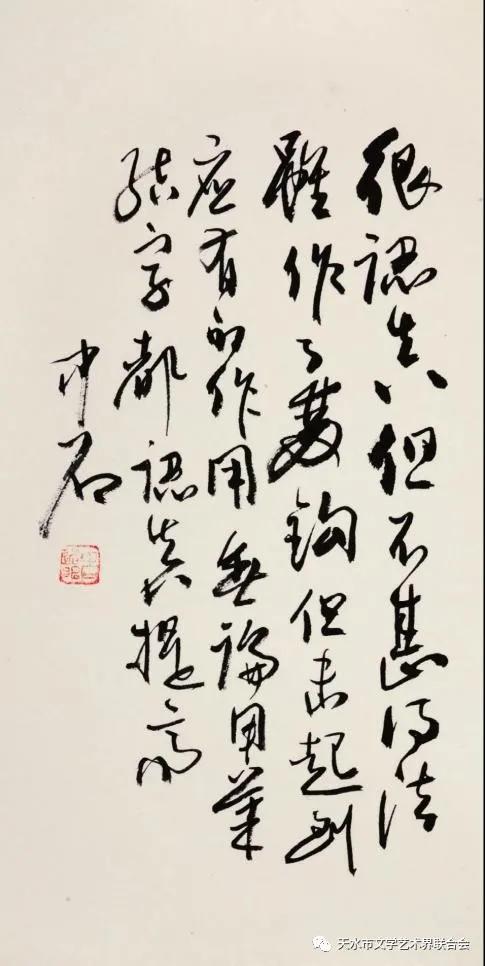 很认真但不甚得法
虽作了双钩但未起到
应有的作用无论用笔
结字都认真提高
中石
天水市文学艺术界联合会